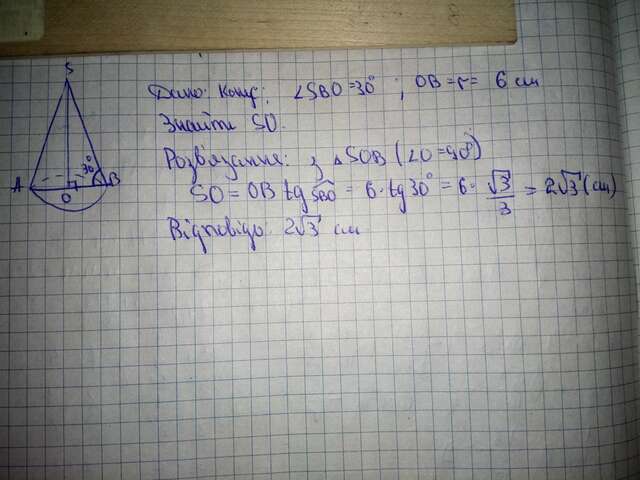 S
Дано: Конус; ∠SBO=30°; OB=r= 6 см
Знайти SO.
Розв'язання: з △SOB (∠O=90°)
SO = OB tg SBO = 6·tg30° = 6· √3/3 = 2√3 (см)
Відповідь 2√3 см
A O 30° B